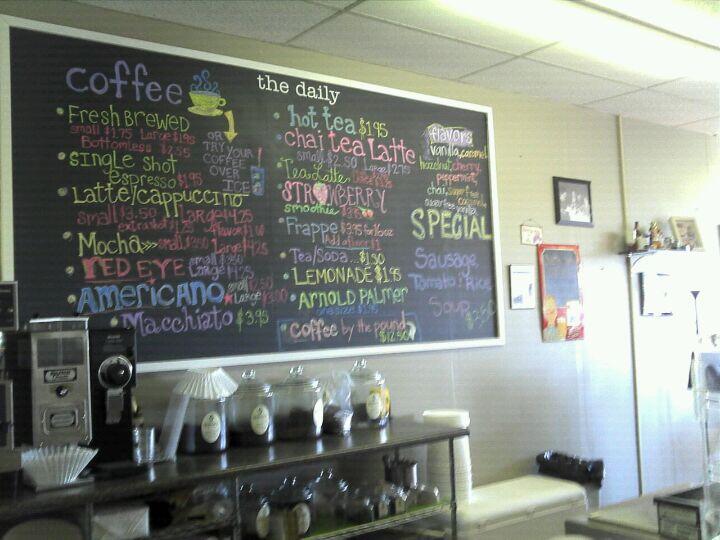 coffee
the daily
Fresh Brewed
small $1.75 Large $1.95
Bottomless $2.55
OR
TRY YOUR
COFFEE
OVER
ICE!
single shot
espresso $1.95
Latte/cappuccino
small $3.50 Large $4.25
extra shot $1.25 flavor $1.00
Mocha>>> small $3.50
Large $4.25
RED EYE small
Large $4.25
AMERICANO small $2.50
Large $3.00
Macchiato $3.95
hot tea $1.95
chai tea Latte
small $2.50 Large $2.75
Tea Latte
STRAWBERRY
smoothie
Frappe $3.95 for 16oz
Add flavor $1
Tea/Soda... $1.50
LEMONADE $1.95
ARNOLD PALMER
one size $1.95
coffee by the pound
$12.50
flavors
vanilla, caramel
hazelnut, cherry,
peppermint,
chai, sugar free
caramel,
sugar free vanilla
SPECIAL
Sausage
Tomato & Rice
Soup $3.50